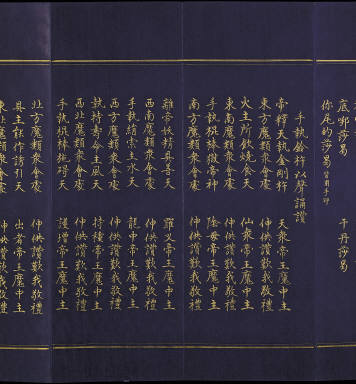 底哪莎易 干丹莎易
你尾的莎易 皆用手印
手執鈴杵以聲誦讚
帝釋天執金剛杵 天衆帝王魔中主
東方魔類衆會處 仲供讚歎我敬禮
火主所飲燒食天 仙衆帝王魔中主
東南魔類衆會處 仲供讚歎我敬禮
手執棍棒獄帝神 陰母帝王魔中主
南方魔類衆會處 仲供讚歎我敬禮
離帝妖精具喜天 羅叉帝王魔中主
西南魔類衆會處 仲供讚歎我敬禮
手執絹索主水天 龍中帝王魔中主
西方魔類衆會處 仲供讚歎我敬禮
執持壽命主風天 持種帝王魔中主
西北魔類衆會處 仲供讚歎我敬禮
手執棍棒施碍天 護增帝王魔中主
北方魔類衆會處 仲供讚歎我敬禮
具主能作誘引天 出者帝王魔中主
東北魔類衆會處 仲供讚歎我敬禮